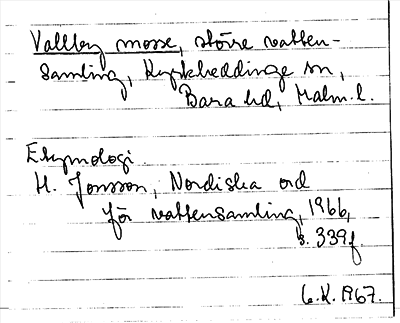 Vallby mosse, större vatten-
samling, Kyrkheddinge sn,
Bara hd, Malm. l.
Etymologi.
H. Jonsson, Nordiska ord
för vattensamling, 1966,
s. 339f.
1967.